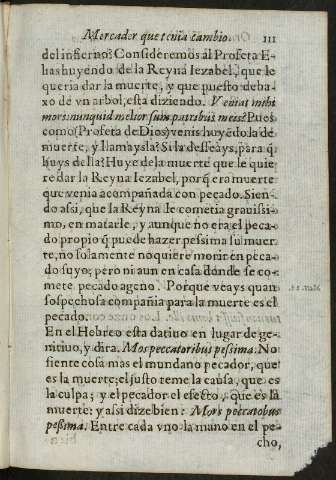 Mercader que tenia cambio. 111
del infierno? Consideremos al Profeta E-
lias huyendo de la Reyna Iezabel, que le
queria dar la muerte, y que puesto deba-
xo de vn arbol, esta diziendo. Veniat mihi
mors: nunquid melior sum patribus meis? Pues
como (Profeta de Dios) venis huyẽdo la de
muerte, y llamaysla? Si la desseays, para q̃
huys della? Huye de la muerte que le quie
re dar la Reyna Iezabel, porq̃ era muerte
que venia acompañada con pecado. Sien-
do assi, que la Reyna le cometia grauissi-
mo, en matarle, y aunque no era el peca-
do propio q̃ puede hazer pessima su muer
te, no solamente no quiere morir en peca-
do suyo, pero ni aun en casa donde se co-
mete pecado ageno. Porque veays quan
sospechosa compañia para la muerte es el
pecado.
En el Hebreo esta datiuo en lugar de ge-
nitiuo, y dira. Mos peccatoribus pessima. No
siente cosa mas el mundano pecador, que
es la muerte; el justo teme la causa, que es
la culpa; y el pecador el efecto, que es la
muerte: y assi dize bien: Mors peccatobus
pessima. Entre cada vno la mano en el pe-
cho,